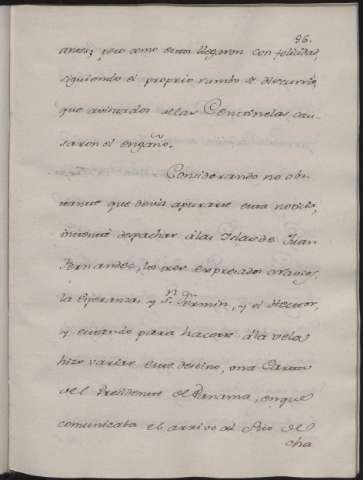 96.
antes; pero como estos llegaron con felicidad,
siguiendo el proprio rumbo se discurrió,
que avistados de las Centinelas cau-
saron el engaño.
Considerando no obs-
tante que devia apurarse esta noticia,
intentó despachar á las Islas de Juan
Fernandes, los tres expresados Navios,
la Esperanza, y Sn. Fermin, y el Hector,
y estando para hacerse á la vela
hizo variar este destino, una Carta
del Presidente de Panama, en que
comunicaba el arrivo al Rio de
cha